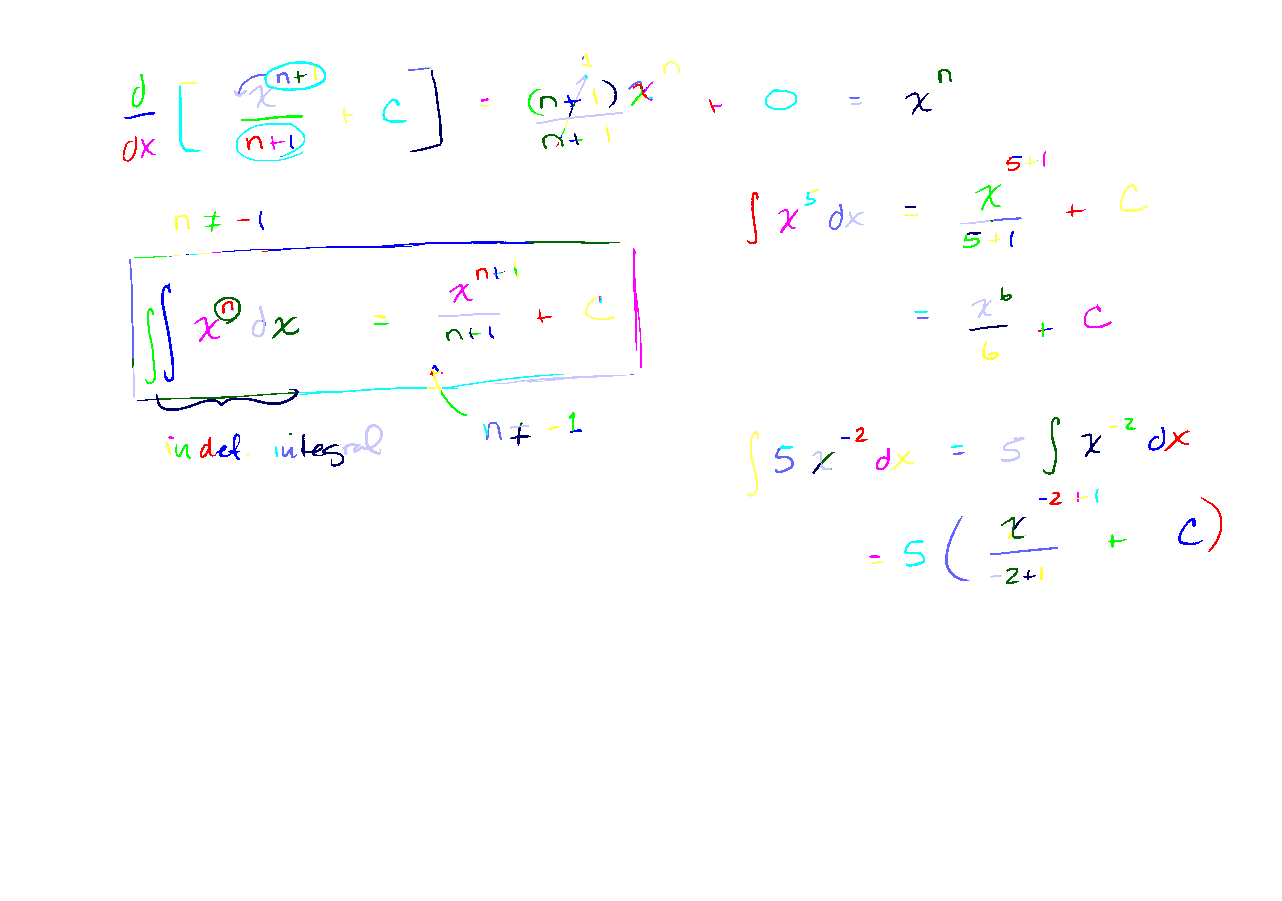 d/dx [ x^(n+1)/(n+1) + C ] = (n+1)x^n/(n+1) + 0 = x^n
n ≠ -1
∫∫ x^n dx = x^(n+1)/(n+1) + C
n ≠ -1
indef. integral
∫ x^5 dx = x^(5+1)/(5+1) + C
= x^6/6 + C
∫ 5 x^(-2) dx = 5 ∫ x^(-2) dx
= 5 ( x^(-2+1)/(-2+1) + C )